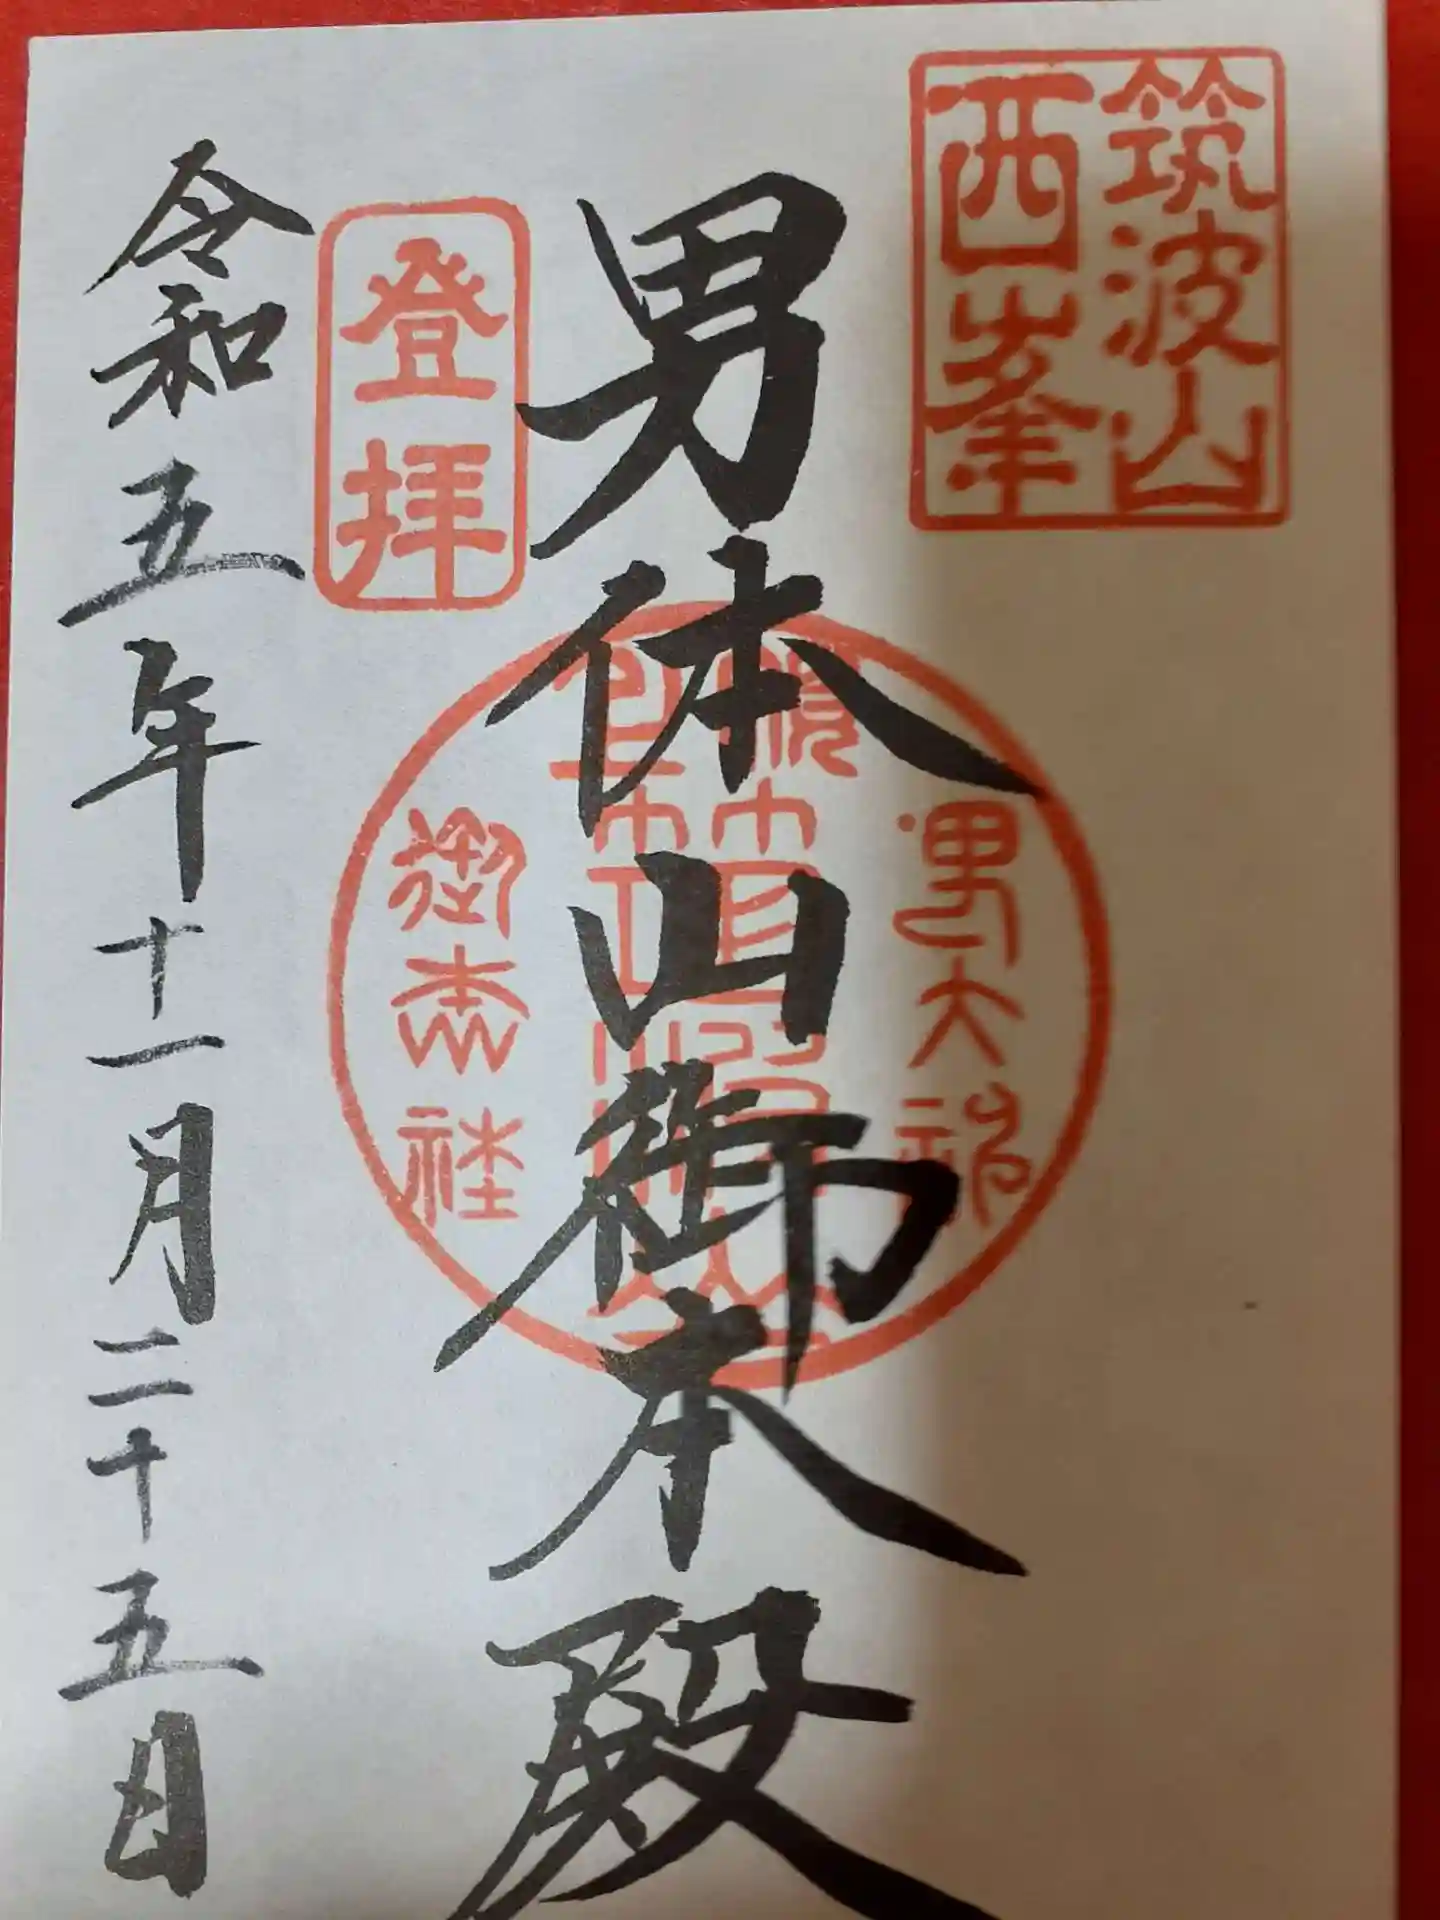 筑波山
西峯
男体山御本殿
登拝
令和五年十一月二十五日